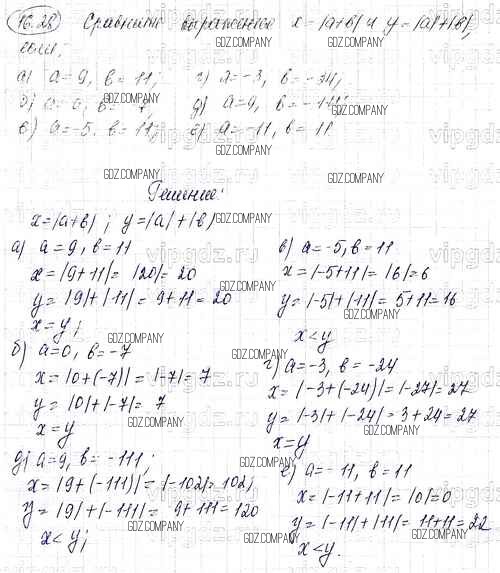 16.28 Сравните выражение x=|a+b| и y=|a|+|b|,
если:
а) a=9, b=11; г) a=-3, b=-34;
б) a=0, b=-7, д) a=9, b=-111;
в) a=-5. b=11; е) a=-11, b=11
Решение:
x=|a+b|; y=|a|+|b|
а) a=9, b=11
x=|9+11|=|20|=20
y=|9|+|11|=9+11=20
x=y;
б) a=0, b=-7
x=|0+(-7)|=|-7|=7
y=|0|+|-7|=7
x=y
д) a=9, b=-111;
x=|9+(-111)|=|-102|=102;
y=|9|+|-111|=9+111=120
x<y;
в) a=-5, b=11
x=|-5+11|=|6|=6
y=|-5|+|11|=5+11=16
x<y
г) a=-3, b=-24
x=|-3+(-24)|=|-27|=27
y=|-3|+|-24|=3+24=27
x=y
е) a=-11, b=11
x=|-11+11|=|0|=0
y=|-11|+|11|=11+11=22
x<y.
GDZ.COMPANY
vipgdz.ru